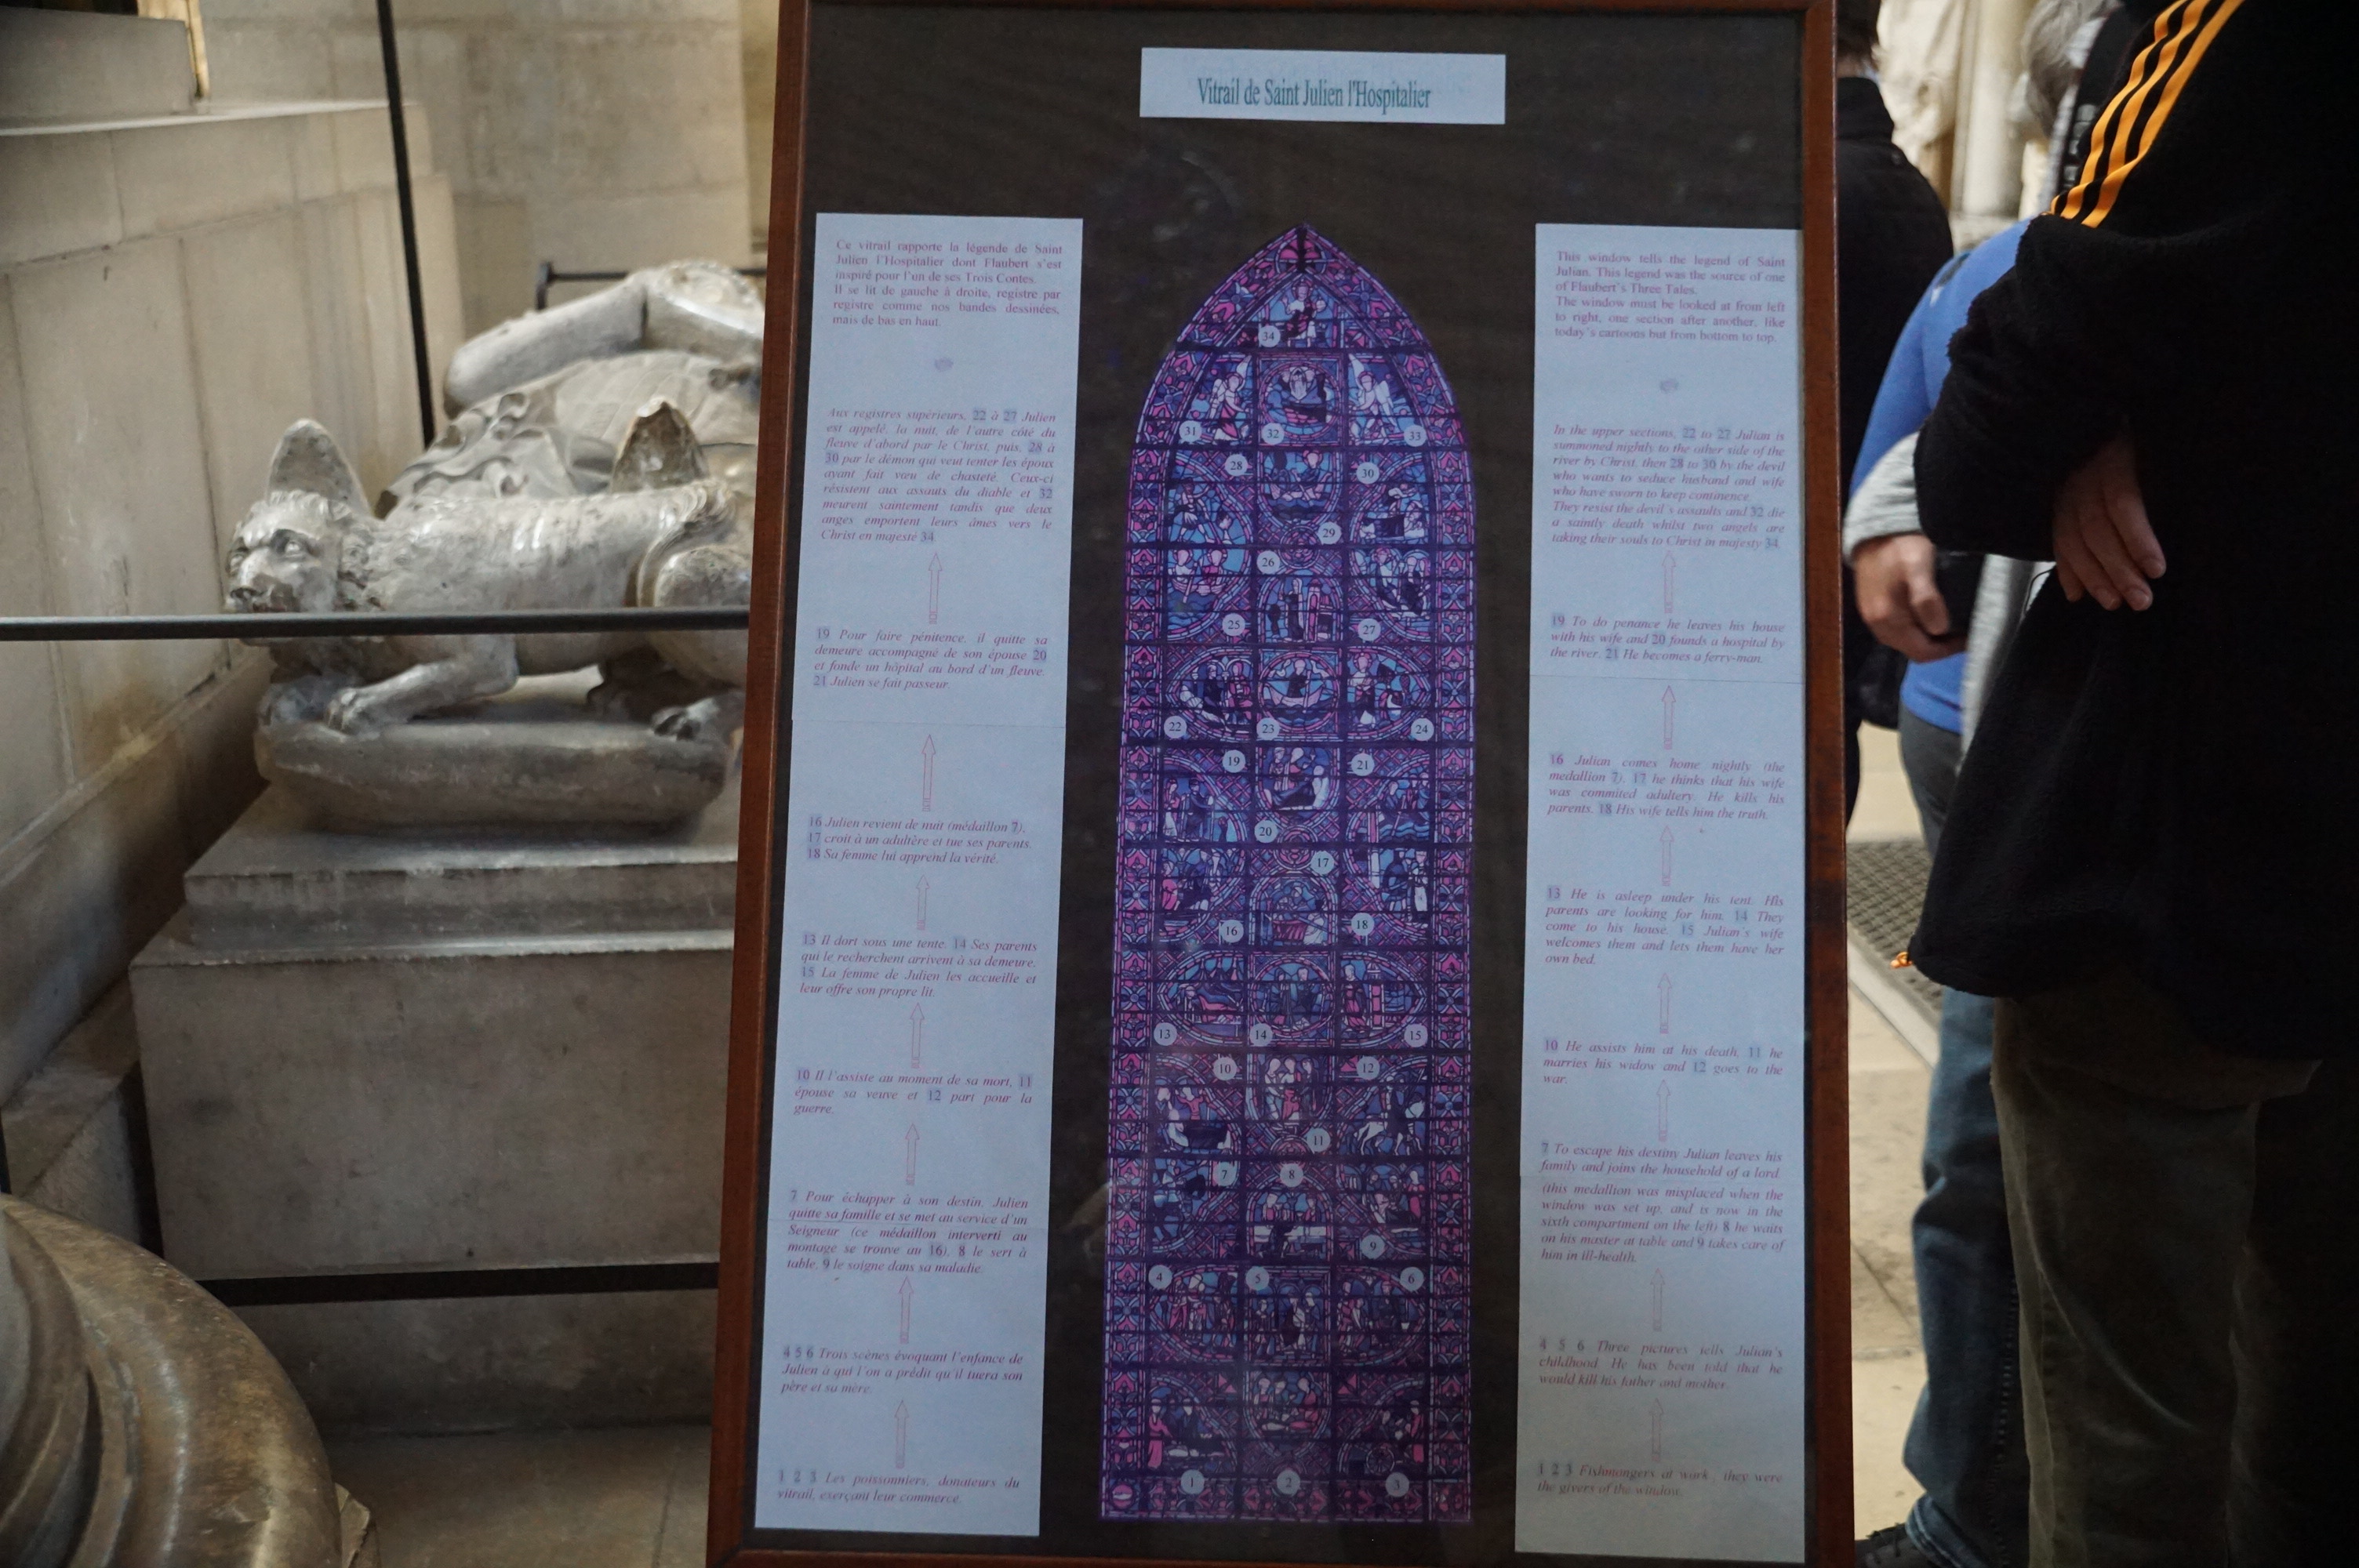 Vitrail de Saint Julien l'Hospitalier
Ce vitrail rapporte la légende de Saint
Julien l'Hospitalier dont Flaubert s'est
inspiré pour l'un de ses Trois Contes.
Il se lit de gauche à droite, registre par
registre comme nos bandes dessinées,
mais de bas en haut.
Aux registres supérieurs, 22 à 27 Julien
est appelé, la nuit, de l'autre côté du
fleuve d'abord par le Christ, puis, 28 à
30 par le démon qui veut tenter les époux
ayant fait vœu de chasteté. Ceux-ci
résistent aux assauts du diable et 32
meurent saintement tandis que deux
anges emportent leurs âmes vers le
Christ en majesté 34.
19 Pour faire pénitence, il quitte sa
demeure accompagné de son épouse 20
et fonde un hôpital au bord d'un fleuve.
21 Julien se fait passeur.
16 Julien revient de nuit (médaillon 7),
17 croit à un adultère et tue ses parents.
18 Sa femme lui apprend la vérité.
13 Il dort sous une tente. 14 Ses parents
qui le recherchent arrivent à sa demeure.
15 La femme de Julien les accueille et
leur offre son propre lit.
10 Il l'assiste au moment de sa mort, 11
épouse sa veuve et 12 part pour la
guerre.
7 Pour échapper à son destin, Julien
quitte sa famille et se met au service d'un
Seigneur (ce médaillon interverti au
montage se trouve au 16), 8 le sert à
table, 9 le soigne dans sa maladie.
4 5 6 Trois scènes évoquant l'enfance de
Julien à qui l'on a prédit qu'il tuera son
père et sa mère.
1 2 3 Les poissonniers, donateurs du
vitrail, exerçant leur commerce.
34
31 32 33
28 30
29
26
25 27
22 23 24
19 21
20
17
16 18
13 14 15
10 12
11
7 8
9
4 5 6
1 2 3
This window tells the legend of Saint
Julian. This legend was the source of one
of Flaubert's Three Tales.
The window must be looked at from left
to right, one section after another, like
today's cartoons but from bottom to top.
In the upper sections, 22 to 27 Julian is
summoned nightly to the other side of the
river by Christ, then 28 to 30 by the devil
who wants to seduce husband and wife
who have sworn to keep continence.
They resist the devil's assaults and 32 die
a saintly death whilst two angels are
taking their souls to Christ in majesty 34.
19 To do penance he leaves his house
with his wife and 20 founds a hospital by
the river. 21 He becomes a ferry-man.
16 Julian comes home nightly (the
medallion 7). 17 he thinks that his wife
was commited adultery. He kills his
parents. 18 His wife tells him the truth.
13 He is asleep under his tent. His
parents are looking for him. 14 They
come to his house. 15 Julian's wife
welcomes them and lets them have her
own bed.
10 He assists him at his death, 11 he
marries his widow and 12 goes to the
war.
7 To escape his destiny Julian leaves his
family and joins the household of a lord.
(this medallion was misplaced when the
window was set up, and is now in the
sixth compartment on the left) 8 he waits
on his master at table and 9 takes care of
him in ill-health.
4 5 6 Three pictures tells Julian's
childhood. He has been told that he
would kill his father and mother.
1 2 3 Fishmongers at work, they were
the givers of the window.